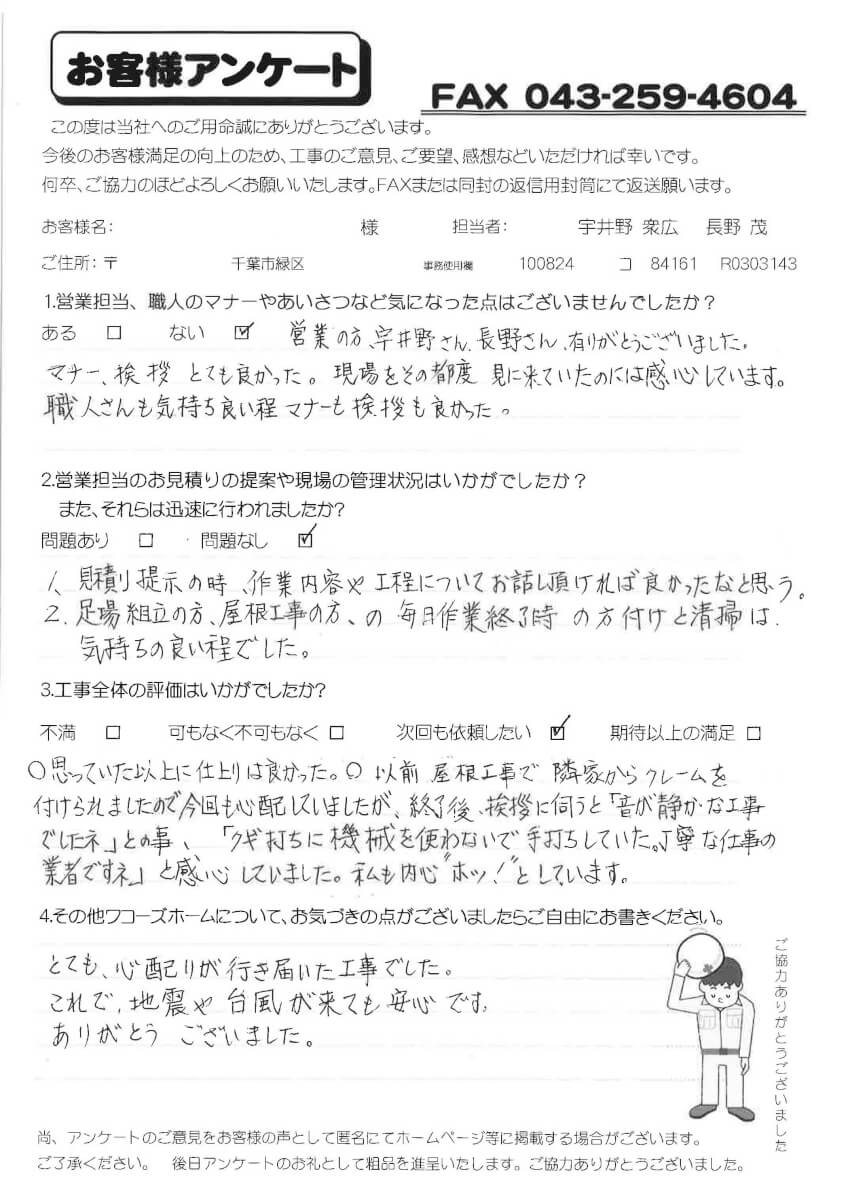 お客様アンケート
FAX 043-259-4604
この度は当社へのご用命誠にありがとうございます。
今後のお客様満足の向上のため、工事のご意見、ご要望、感想などいただければ幸いです。
何卒、ご協力のほどよろしくお願いいたします。FAXまたは同封の返信用封筒にて返送願います。
お客様名: 様 担当者: 宇井野 衆広 長野 茂
ご住所:〒 千葉市緑区 事務使用欄 100824 コ 84161 R0303143
1.営業担当、職人のマナーやあいさつなど気になった点はございませんでしたか?
ある □ ない ☑ 営業の方、宇井野さん、長野さん、有りがとうございました。
マナー、挨拶 とても良かった。現場をその都度 見に来ていたのには感心しています。
職人さんも気持ち良い程マナーも挨拶も良かった。
2.営業担当のお見積りの提案や現場の管理状況はいかがでしたか?
また、それらは迅速に行われましたか?
問題あり □ ・問題なし ☑
1、見積り提示の時、作業内容や工程についてお話し頂ければ良かったなと思う。
2.足場組立の方、屋根工事の方、の毎日作業終了時の方付けと清掃は、
気持ちの良い程でした。
3.工事全体の評価はいかがでしたか?
不満 □ 可もなく不可もなく □ 次回も依頼したい ☑ 期待以上の満足 □
○思っていた以上に仕上りは良かった。○以前屋根工事で隣家からクレームを
付けられましたので今回も心配していましたが、終了後、挨拶に伺うと「音が静かな工事
でしたネ」との事、「クギ打ちに機械を使わないで手打ちしていた。丁寧な仕事の
業者ですネ」と感心していました。私も内心“ホッ!”としています。
4.その他ワコーズホームについて、お気づきの点がございましたらご自由にお書きください。
とても、心配りが行き届いた工事でした。
これで、地震や台風が来ても安心です。
ありがとう ございました。
ご協力ありがとうございました
尚、アンケートのご意見をお客様の声として匿名にてホームページ等に掲載する場合がございます。
ご了承ください。 後日アンケートのお礼として粗品を進呈いたします。ご協力ありがとうございました。